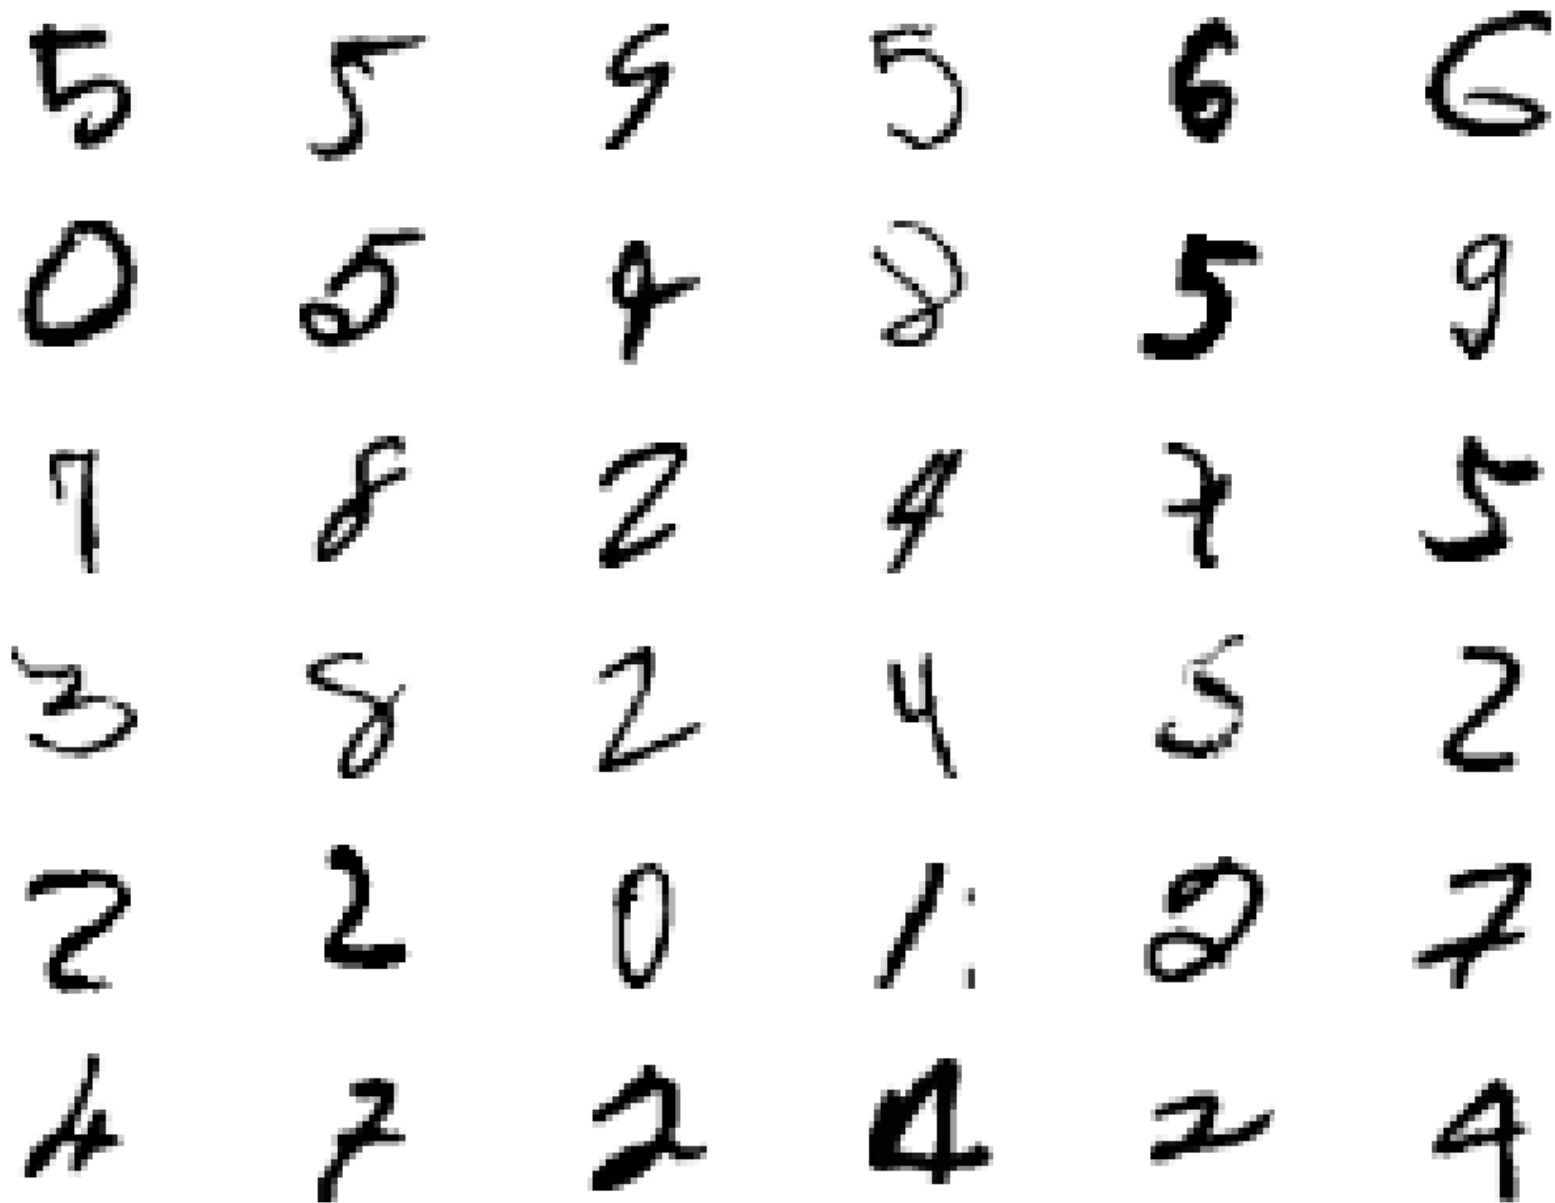 5 5 5 5 6 6
0 5 4 8 5 9
7 8 2 4 7 5
3 8 2 4 5 2
2 2 0 1 2 7
4 7 2 4 2 4